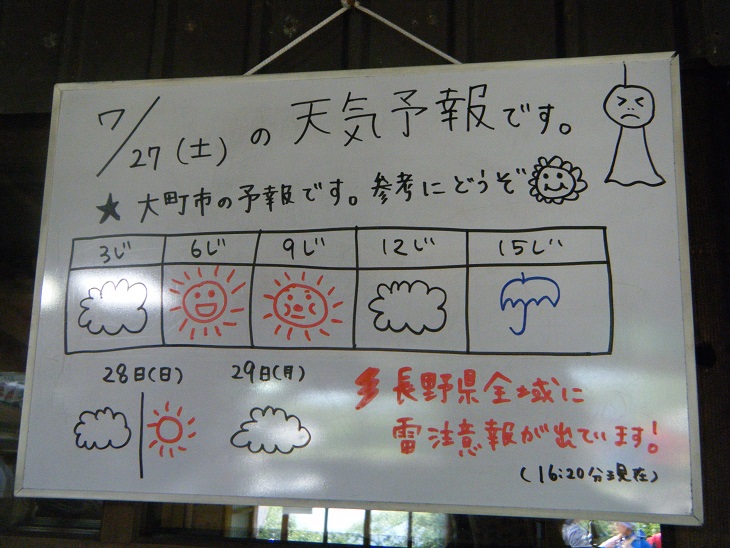 7/27(土)の天気予報です。
★大町市の予報です。参考にどうぞ
3じ 6じ 9じ 12じ 15じ
28日(日) 29日(月)
長野県全域に
雷注意報が出ています!
(16:20分現在)